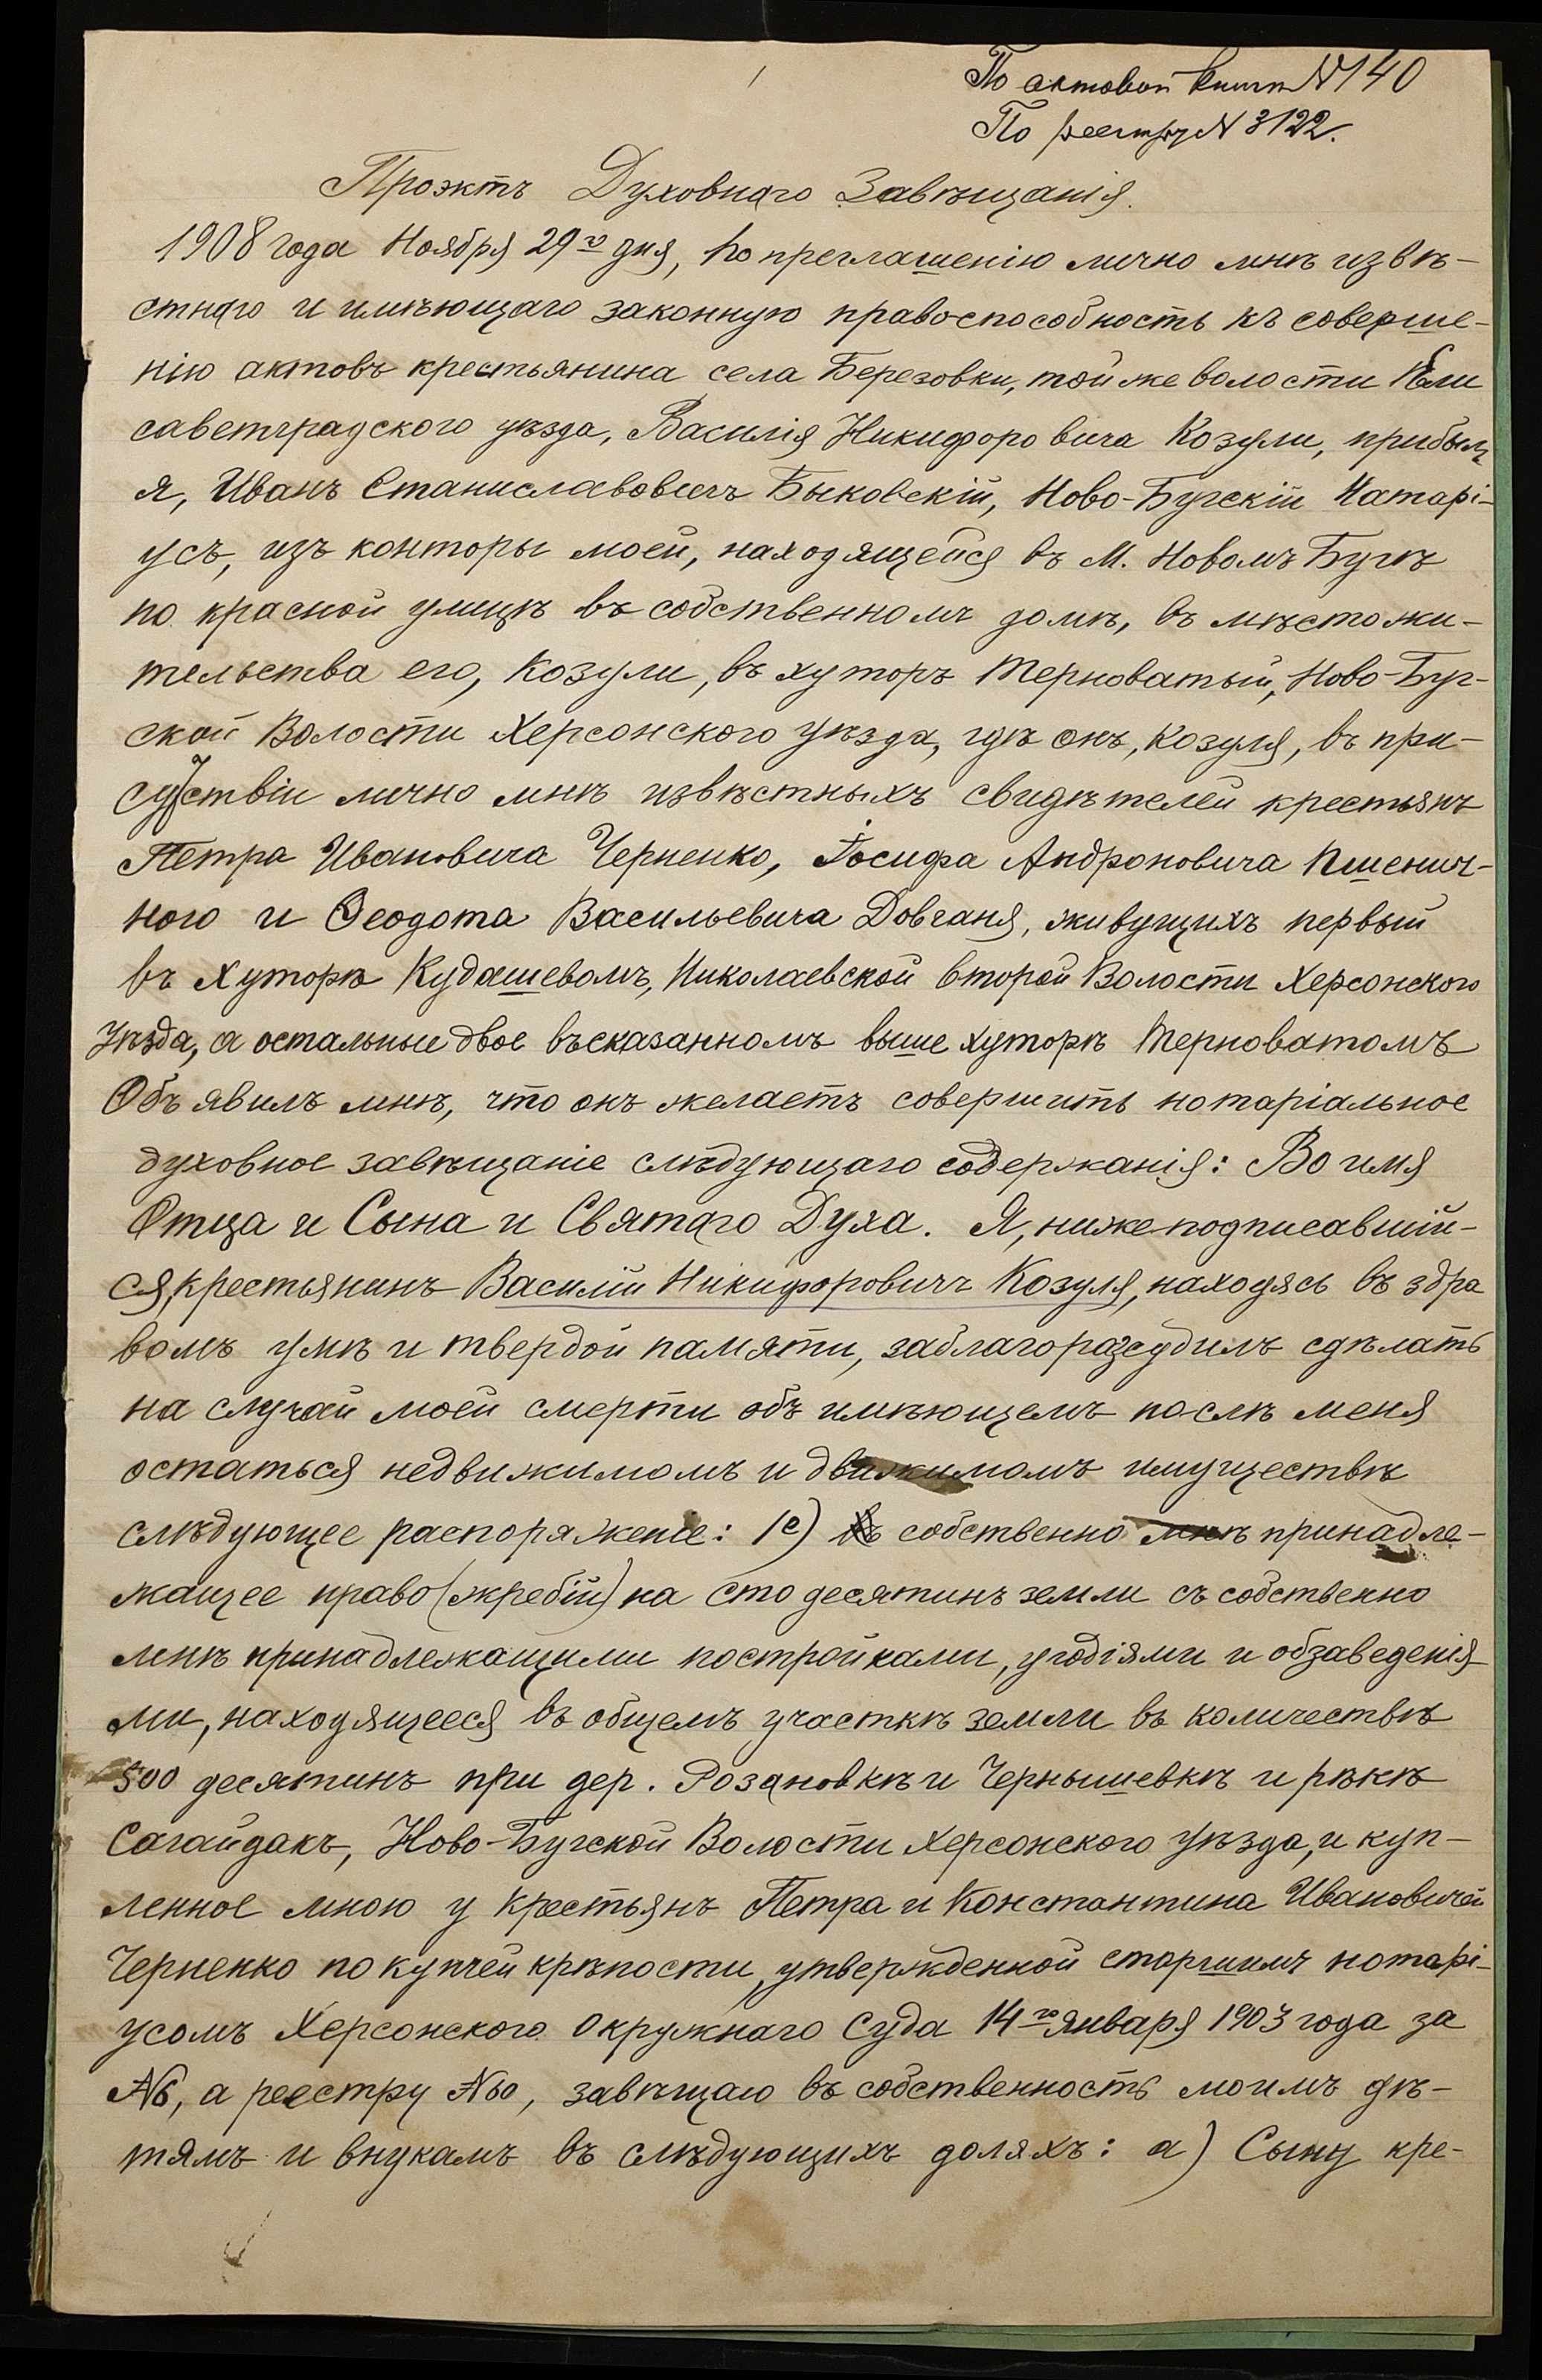 По актовой книгѣ N 140
По реестру N 3122.
Проэктъ Духовнаго Завѣщанія.
1908 года Ноября 29го дня, по преглашенію лично мнѣ извѣ-
стнаго и имѣющаго законную правоспособность къ соверше-
нію актовъ крестьянина села Березовки, той же волости Ели
саветградского уѣзда, Василія Никифоровича Козули, прибылъ
я, Иванъ Станиславовичъ Быковскій, Ново-Бугскій Натарі-
усъ, изъ конторы моей, находящейся въ М. Новомъ Бугѣ
по красной улицѣ въ собственномъ домѣ, въ мѣстожи-
тельства его, Козули, въ хуторъ Терноватый, Ново-Буг-
ской Волости Херсонского уѣзда, гдѣ онъ, Козуля, въ при-
сутствіи лично мнѣ извѣстныхъ свидѣтелей крестьянъ
Петра Ивановича Черненко, Іосифа Андроновича Пшенич-
ного и Ѳеодота Васильевича Довганя, живущихъ первый
въ Хуторѣ Кудашевомъ, Николаевской второй Волости Херсонского
Уѣзда, а остальные двое въ сказанномъ выше хуторѣ Терноватомъ
Объявилъ мнѣ, что онъ желаетъ совершить нотаріальное
духовное завѣщаніе слѣдующаго содержанія: Во имя
Отца и Сына и Святаго Духа. Я, нижеподписавшій-
ся, крестьянинъ Василій Никифоровичъ Козуля, находясь въ здра
вомъ умѣ и твердой памяти, заблагоразсудилъ сдѣлать
на случай моей смерти объ имѣющемъ послѣ меня
остаться недвижимомъ и движимомъ имуществѣ
слѣдующее распоряженіе: 1е) собственно мнѣ принадле-
жащее право (жребій) на сто десятинъ земли съ собственно
мнѣ принадлежащими постройками, угодіями и обзаведенія-
ми, находящееся въ общемъ участкѣ земли въ количествѣ
500 десятинъ при дер. Розановкѣ и Чернышевкѣ и рѣкѣ
Сагайдакъ, Ново-Бугской Волости Херсонского уѣзда, и куп-
ленное мною у крестьянъ Петра и Константина Ивановичей
Черненко по купчей крѣпости, утвержденной старшимъ нотарі-
усомъ Херсонского Окружнаго Суда 14го января 1903 года за
N6, а реестру N60, завѣщаю въ собственность моимъ дѣ-
тямъ и внукамъ въ слѣдующихъ доляхъ: а) Сыну кре-